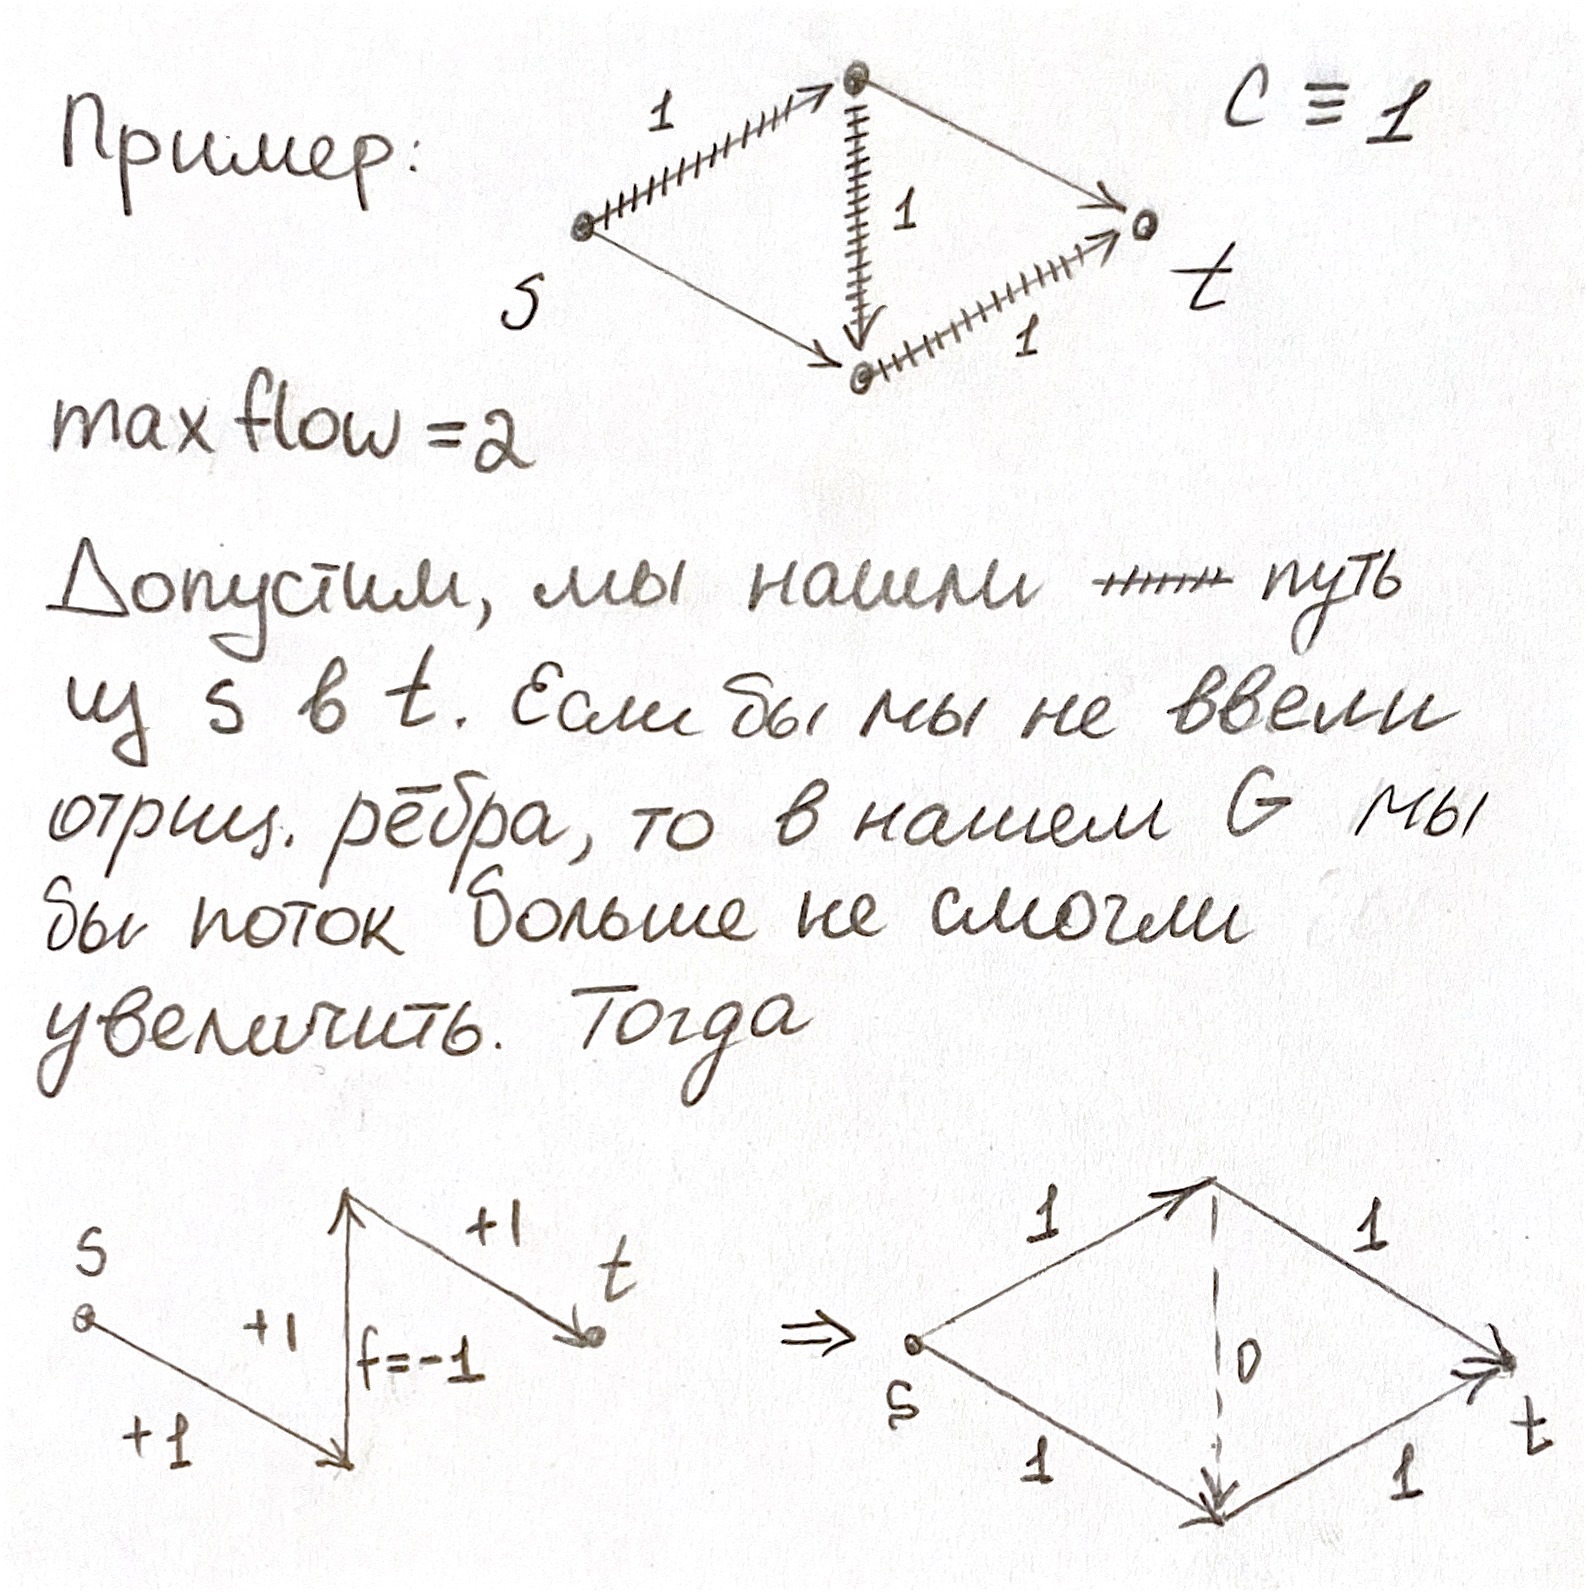 Пример:
1
C ≡ 1
1
s
t
1
max flow = 2
Допустим, мы нашли путь
из s в t. Если бы мы не ввели
отриц. рёбра, то в нашем G мы
бы поток больше не смогли
увеличить. Тогда
s
+1
t
+1
f=-1
+1
⇒
1
1
s
0
t
1
1